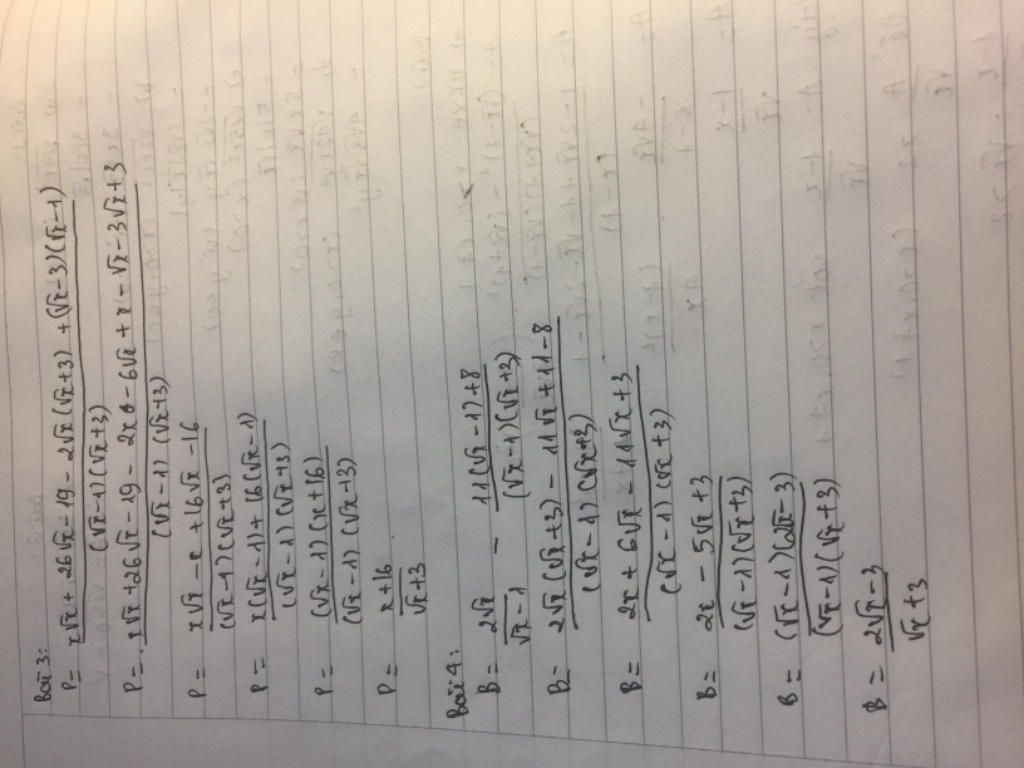 Bài 3:
P = x√x + 26√x - 19 - 2√x(√x+3) + (√x-3)(√x-1)
(√x-1)(√x+3)
P = x√x + 26√x - 19 - 2x - 6√x + x - √x - 3√x + 3
(√x-1)(√x+3)
P = x√x - x + 16√x - 16
(√x-1)(√x+3)
P = x(√x-1) + 16(√x-1)
(√x-1)(√x+3)
P = (√x-1)(x+16)
(√x-1)(√x+3)
P = x+16
√x+3
Bài 4:
B = 2√x - 11(√x-1)+8
√x-1 (√x-1)(√x+3)
B = 2√x(√x+3) - 11√x + 11 - 8
(√x-1)(√x+3)
B = 2x + 6√x - 11√x + 3
(√x-1)(√x+3)
B = 2x - 5√x + 3
(√x-1)(√x+3)
B = (√x-1)(2√x-3)
(√x-1)(√x+3)
B = 2√x-3
√x+3